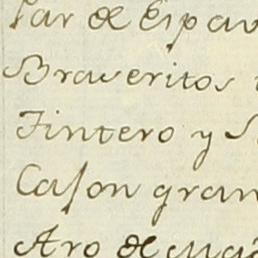 Par de Espav
Braseritos
Tintero y S
Cajon gran
Aro de